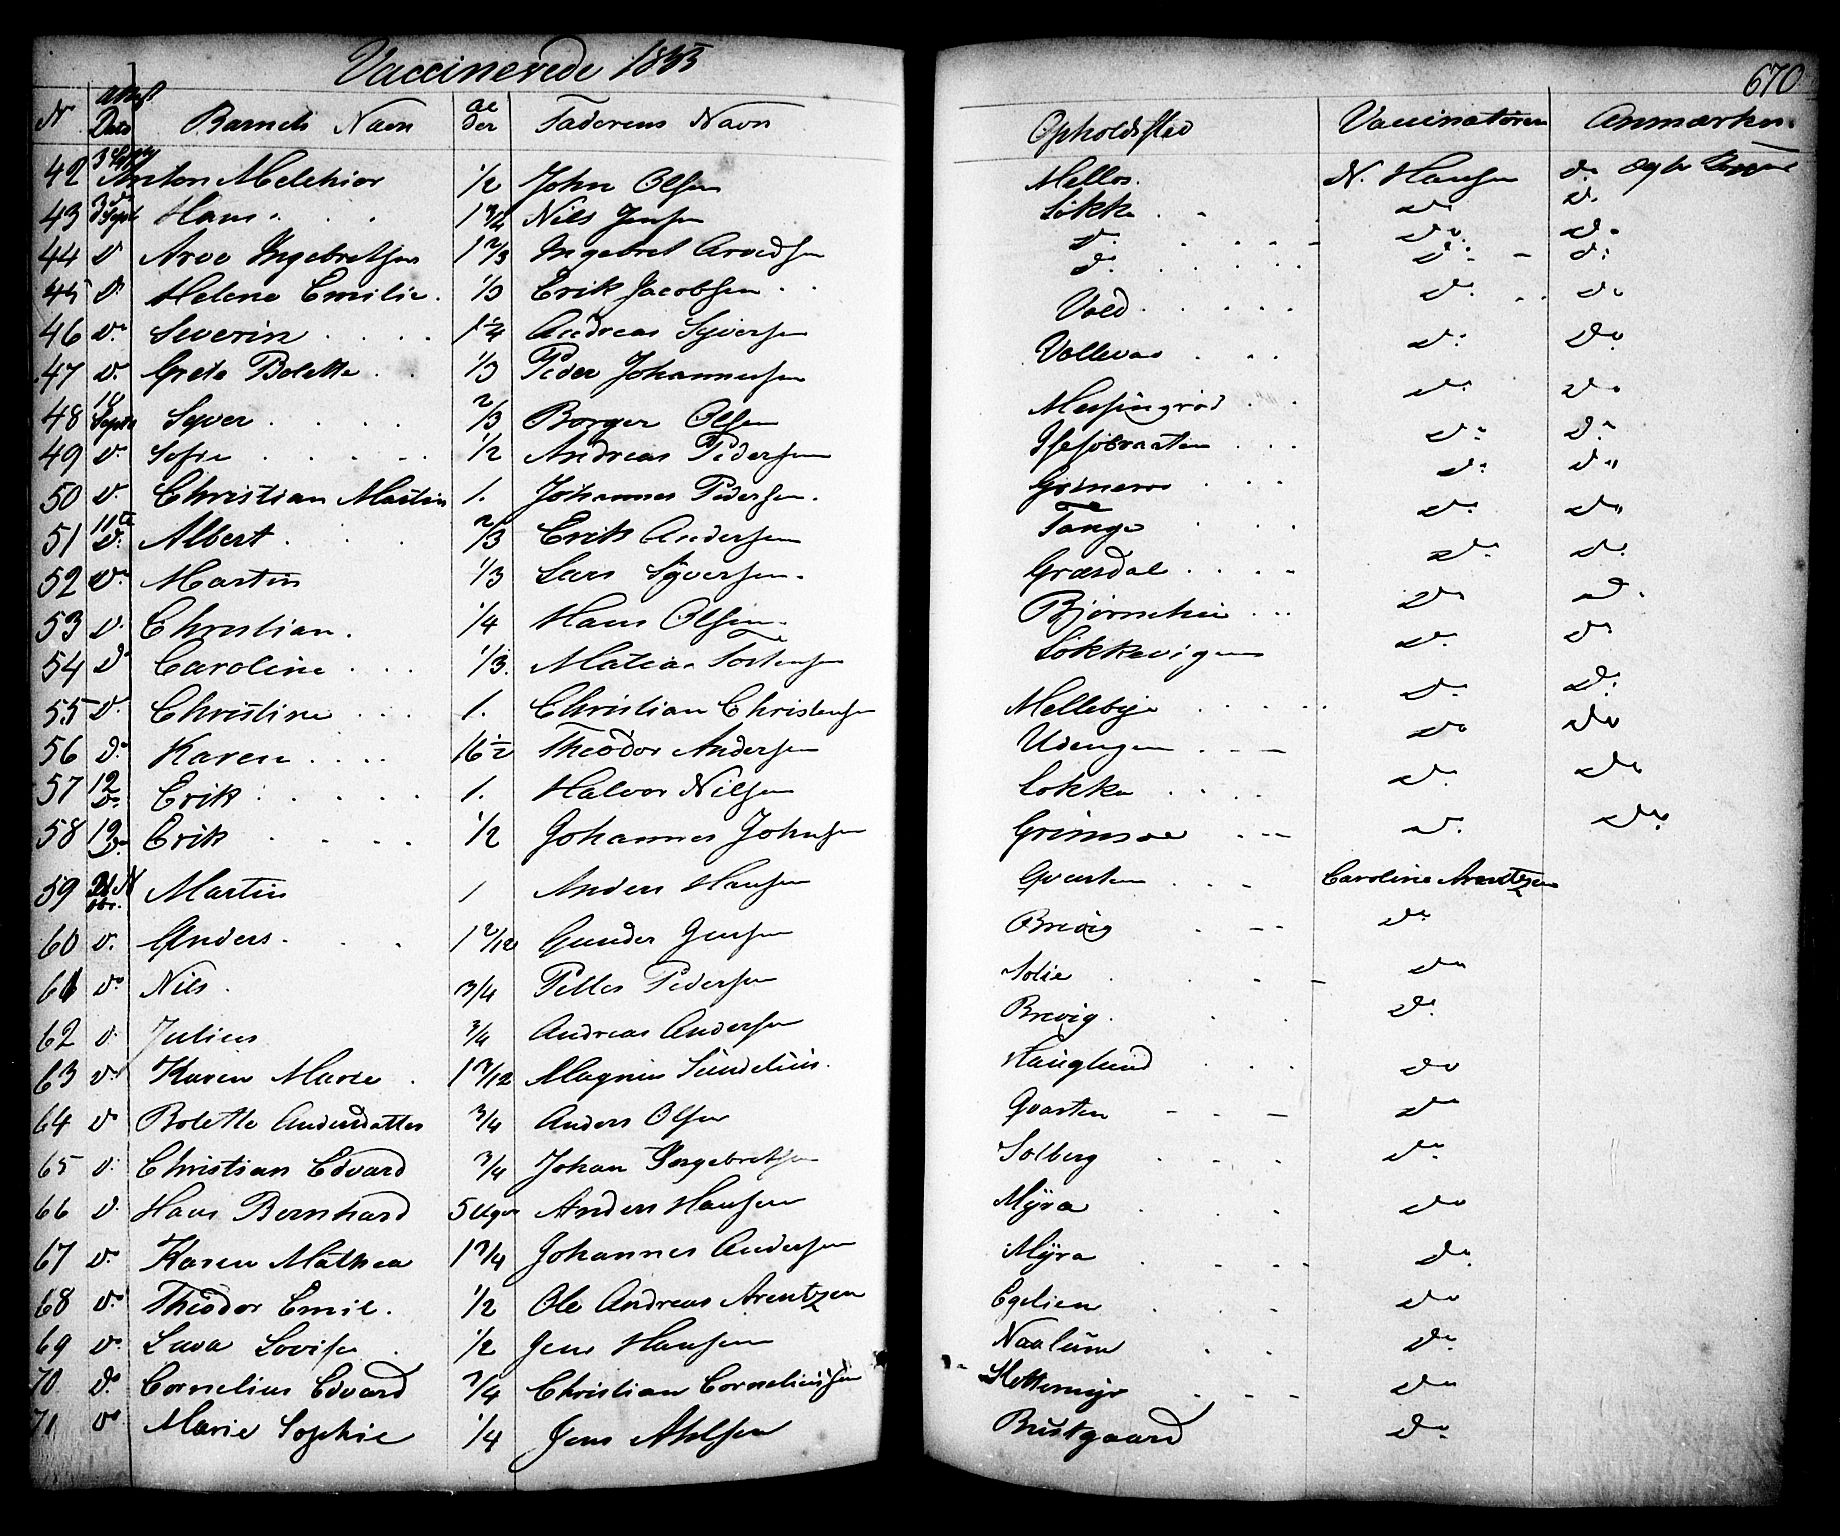 Vaccinerede 1855
670
N Attest Dato Barnets Navn Alder Faderens Navn Opholdssted Vaccinatøren Anmærkn.
42 3 Anton Melchior 1/2 John Olsen Mellos. N. Hansen do
43 Sept Hans 1 3/4 Nils Jensen Løkke do do
44 do Arve Ingebretsen 1 2/3 Ingebret Arvedsen do do do
45 do Helene Emilie 1/3 Erik Jacobsen do do do
46 do Severin 1 1/4 Andreas Syversen Vold do do
47 do Grete Bolette 1/3 Peder Johannesen do do
48 18 Septr Syver 2/3 Borger Olsen do do
49 do Sofie 1/2 Andreas Pedersen do do
50 do Christian Martin 1. Johannes Pedersen do do
51 11te do Albert 2/3 Erik Andersen Tange do do
52 do Martin 1/3 Lars Syversen Græsdal do do
53 do Christian 1/4 Hans Olsen do do
54 do Caroline 1/3. Løkkevigen do do
55 do Christine 1. Christian Christensen Mellebye do do
56 do Karen 16 1/2 Theodor Andersen Udengen do do
57 12 do Erik 1. Halvor Nilsen Løkke do do
58 19 do Erik 1/2 Johannes Johnsen Grimsøe do do
59 Martin 1 Anders Hansen Qvasten Caroline Arentzen
60 do Anders 1 2/12 Gunder Jensen Brevig do
61 do Nils 3/4 Pelles Pedersen Solie do
62 do Julius 3/4 Andreas Andersen Brevig do
63 do Karen Marie Magnus Sundelius Hauglund do
64 do Bolette Andersdatter 3/4 Anders Olsen Qvasten do
65 do Christian Edvard 3/4 Johan Ingebretsen Solberg do
66 do Hans Bernhard 5 Uger Anders Hansen Myra do
67 do Karen Mathea Johannes Andersen Myra do
68 do Theodor Emil 1/2 Ole Andreas Arentzen Egelien do
69 do Lava Lovise 1/2 Jens Hansen Naalum do
70 do Cornelius Edvard 3/4 Christian Corneliussen Slettemyr do
71 do Marie Sophie 1/4 Jens Bustgaard do